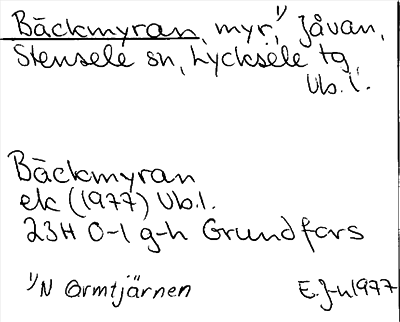 Bäckmyran, myr,¹⁾ Jåvan,
Stensele sn, Lycksele tg,
Vb.l.
Bäckmyran
ek (1977) Vb.l.
23H 0-1 g-h Grundfors
¹⁾N Ormtjärnen E.J-n 1977